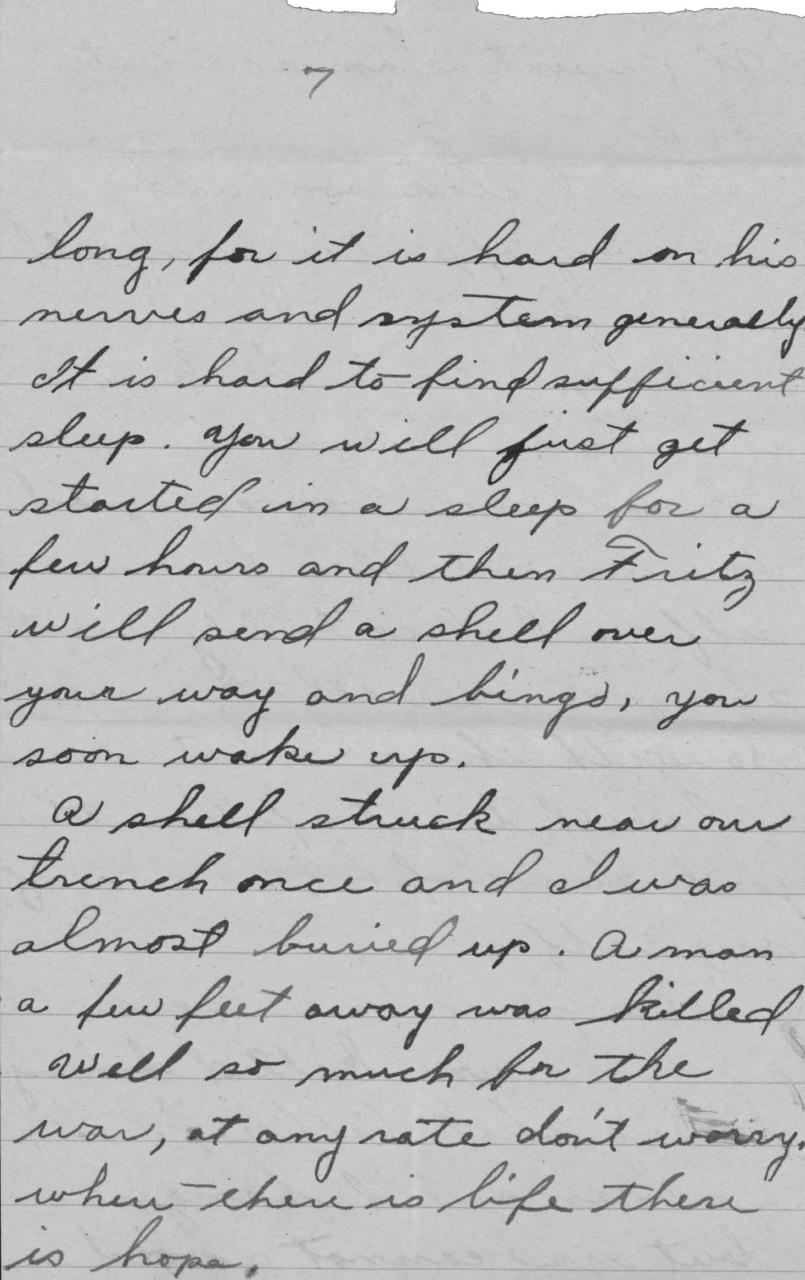 7
long, for it is hard on his
nerves and system generally
It is hard to find sufficient
sleep. You will just get
started in a sleep for a
few hours and then Fritz
will send a shell over
your way and bingo, you
soon wake up.
A shell struck near our
trench once and I was
almost buried up. A man
a few feet away was killed
Well so much for the
war, at any rate don't worry.
when there is life there
is hope.